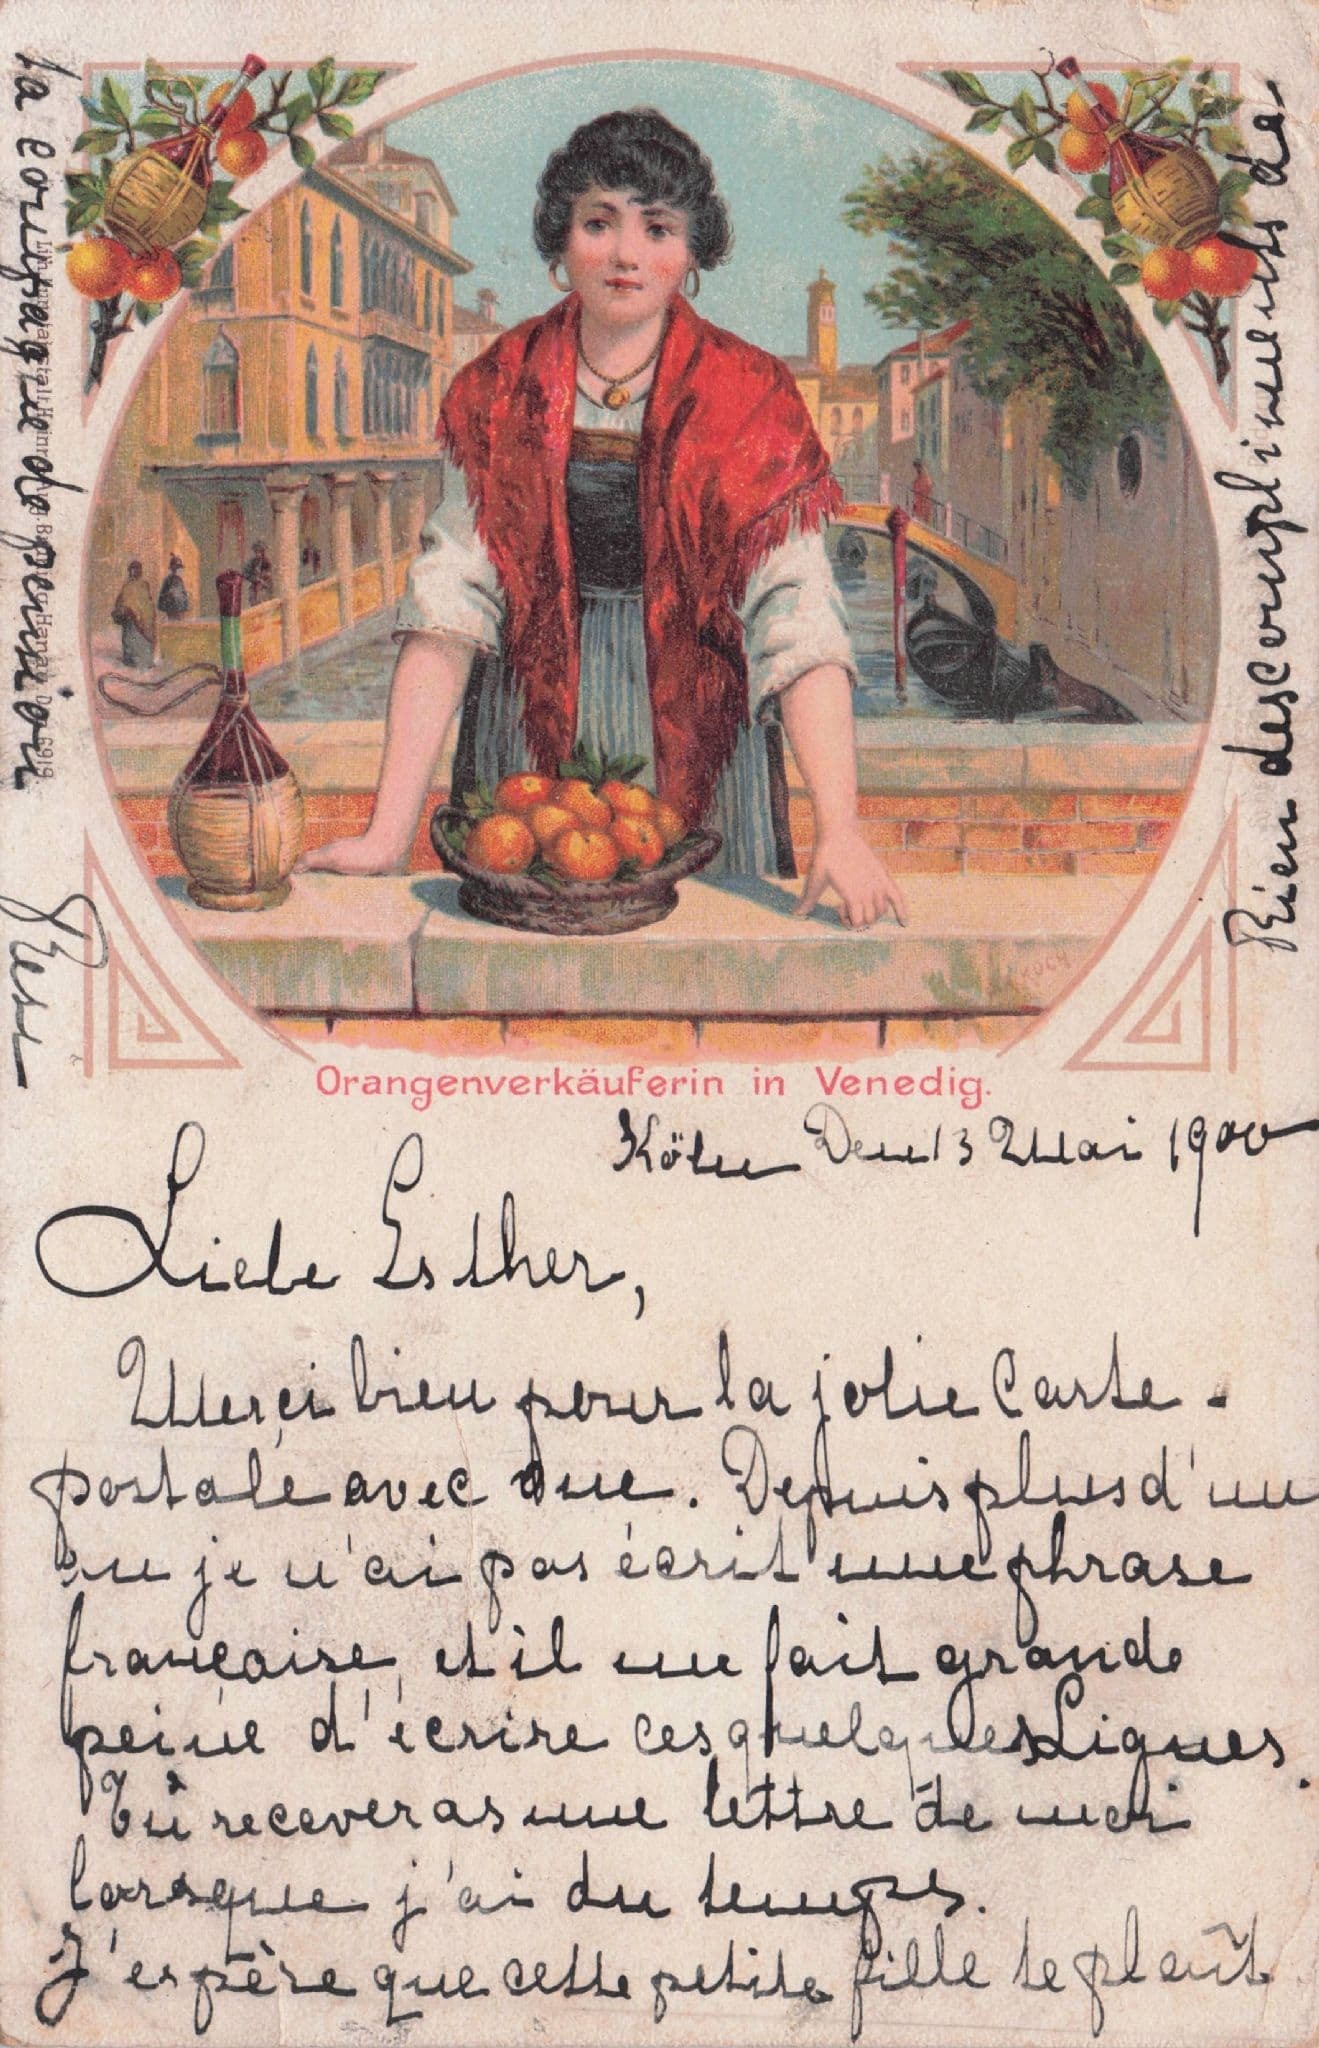 Orangenverkäuferin in Venedig.
Köln Den 13 Mai 1900
Liebe Esther,
Merci bien pour la jolie Carte-
postale avec vue. Depuis plus d'un
an je n'ai pas écrit une phrase
française, et il me fait grande
peine d'écrire ces quelques Lignes.
Tu receveras une lettre de moi
lorsque j'ai du temps.
J'espère que cette petite fille te plaût
Rien des compliments de
la compagne de pension
Ress
KOCH
Lith. Kunstanstalt Heinr. & Aug. Brüning, Hanau. Des. 6919.